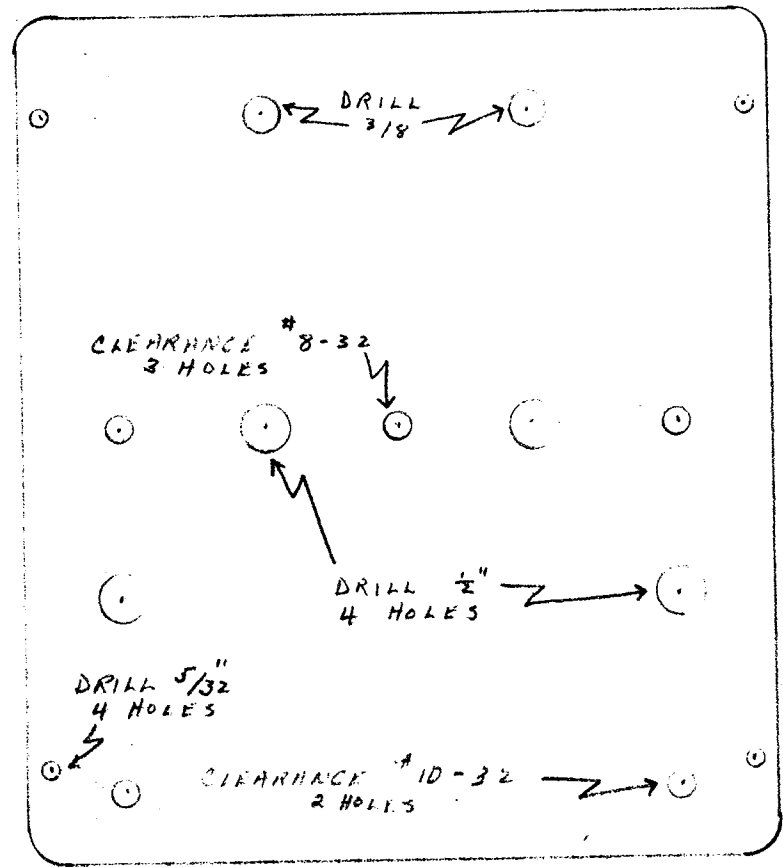 DRILL
3/8
CLEARANCE #8-32
3 HOLES
DRILL ½"
4 HOLES
DRILL 5/32"
4 HOLES
CLEARANCE #10-32
2 HOLES